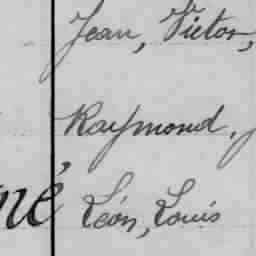 Jean, Victor,
Raymond,
né Léon, Louis